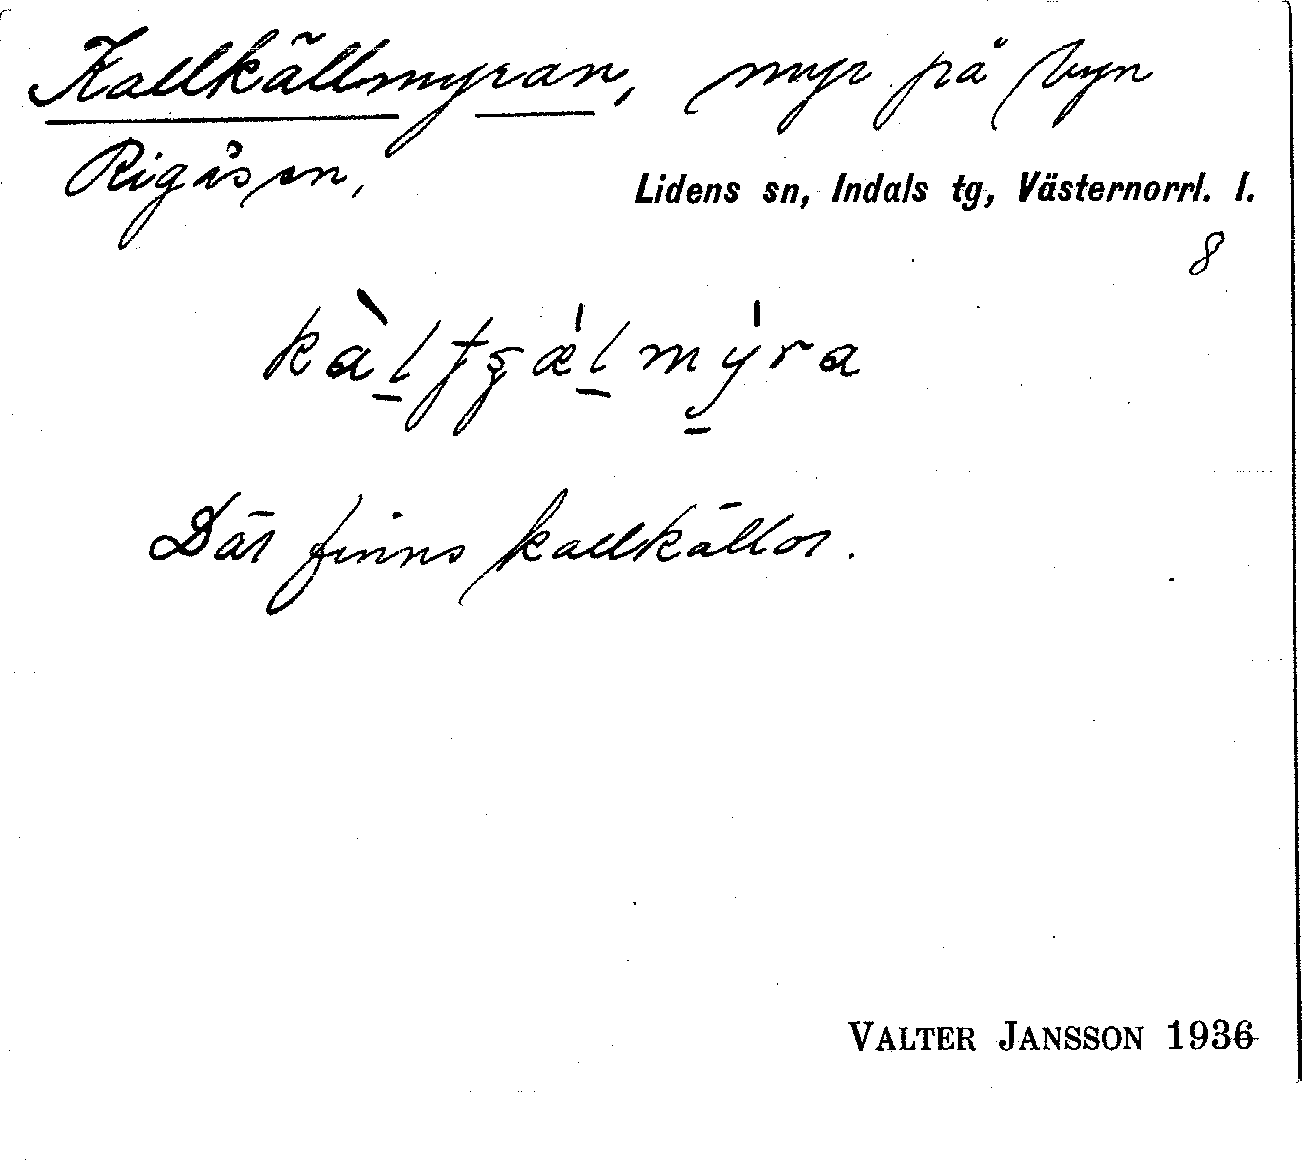 Kallkällmyran, myr på byn
Rigåsen,
Lidens sn, Indals tg, Västernorrl. l.
8
Där finns kallkällor.
VALTER JANSSON 1936